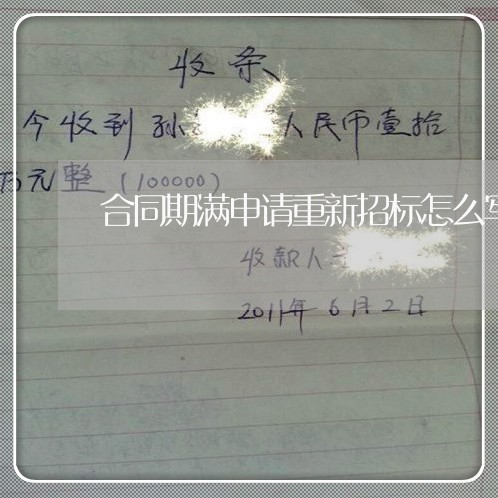 收条
今收到孙 人民币壹拾
万元整(100000)
合同期满申请重新招标怎么写
收款人
2011年6月2日